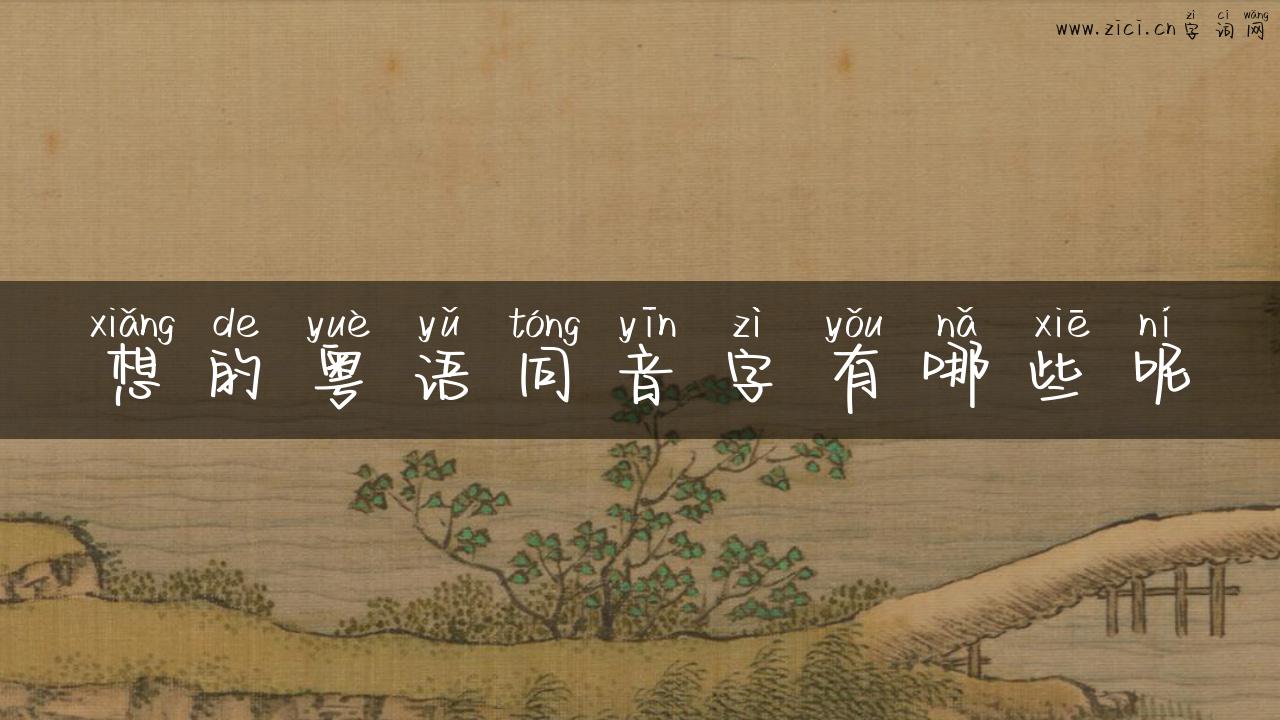 zì cí wǎng
www.zici.cn 字词网
xiǎng de yuè yǔ tóng yīn zì yǒu nǎ xiē ní
想的粤语同音字有哪些呢